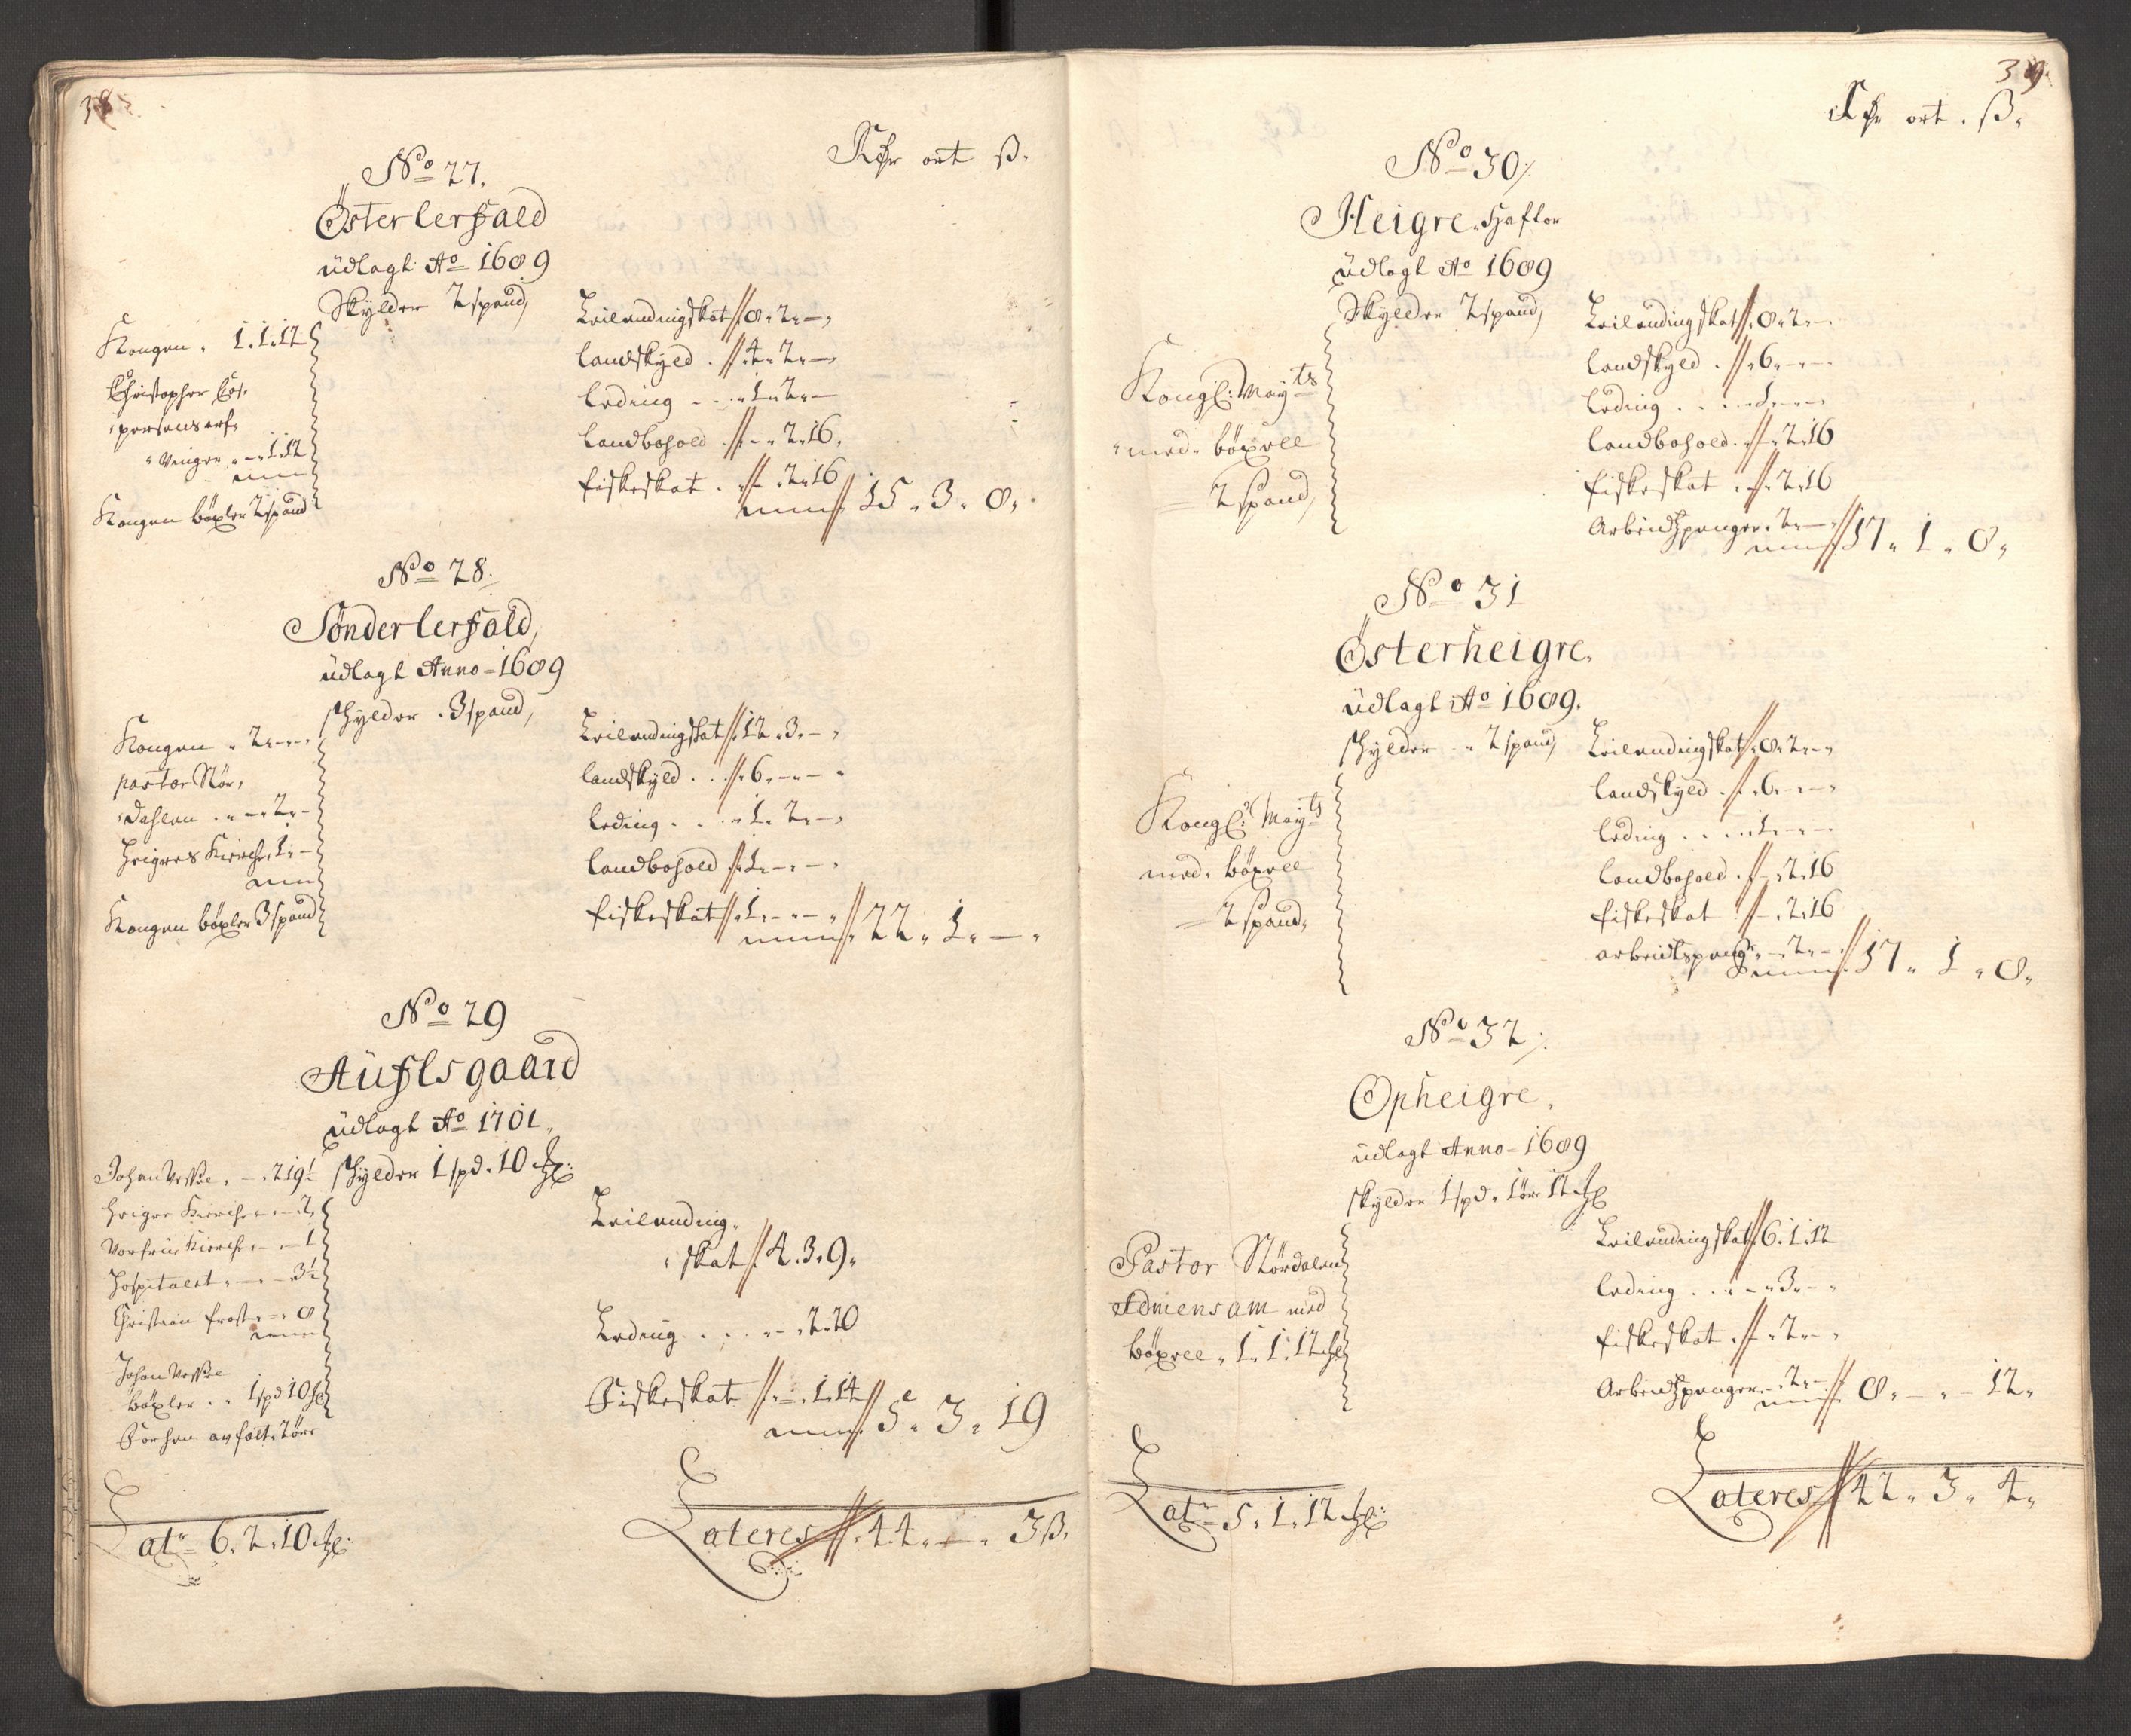 38.
Rdr ort ß.
No 27.
Österlerfald
üdlagt Ao 1689
Skylder 2 spand,
Kongen . 1.1.12
Christopher Cas,
persens arf,
Vinger . — 1.12
Kongen böxler 2 spand
Leilendingskat 8. 2. —
landskyld . 4. 2. —
leding - . . 1. 2. —
landbohold . — . 2. 16.
fiskeskat . — . 2. 16
15. 3. 8.
No 28.
Sönderlerfald,
üdlagt Anno - 1689
skylder . 3 spand,
Kongen . 2. - . -
pastor Stör,
dahlen . . — 2. -
Heigres Kirche, 1. -
Kongen böxler 3 spand
Leilendingskat 12. 3. -
landskyld . . 6. - . -
leding . . . 1. 2. -
landbohold 1. - . -
fiskeskat 1. - . -
22. 1. —
No 29
Aüfls gaard
üdlagt Ao 1701.
skylder 1 spd. 10 mkl:
Johan Vesse . — . 2 19½
Heigre Kirche . . — 2
Vorfrü Kirche . — . 1
Hospitalet . — . — 3½
Christian frost . — . 8
Johan Vesse
böxler . . 1 spd 10 mkl
Leilending,
skat 4. 3. 9.
Leding . . . — . 2. 20
Fiskeskat . — . 1. 14
5. 3. 19
Lat. 6. 2. 10 mkl:
Lateres 44. — . 3 ß.
39.
Rdr ort . ß.
No 30.
Heigre Haftor
üdlagt Ao 1689
Skylder 2 spand,
Kongl: Mayts
med böxell
2 Spand,
Leilendingskat 8. 2. —
landskyld . 6. - . -
leding . . . 1. - . -
landbohold . — . 2. 16
fiskeskat . — . 2. 16
Arbeidspenger . 2. —
17. 1. 8.
No 31
Österheigre.
üdlagt Ao 1689.
skylder . 2 spand,
Kongl: Mayts
med böxell
2 Spand,
Leilendingskat 8. 2. —
landskyld . 6. - . -
leding . . . 1. - . -
landbohold . — . 2. 16
fiskeskat — . 2. 16
arbeidtspengr . — 2. -
17. 1. 8.
No 32.
Opheigre.
üdlagt Anno - 1689
skylder 1 spd. 1 ör 12 mkl
Pastor Stördalen
Ad mensam med
böxell . 1. 1. 12 mkl
Leilendingskat 6. 1. 12
leding . . . — . 3. -
fiskeskat . — . 2. -
Arbeidspenger . — 2. —
8. — . - 12.
Lat. 5. 1. 12 mkl:
Lateres 42. 3. 4.